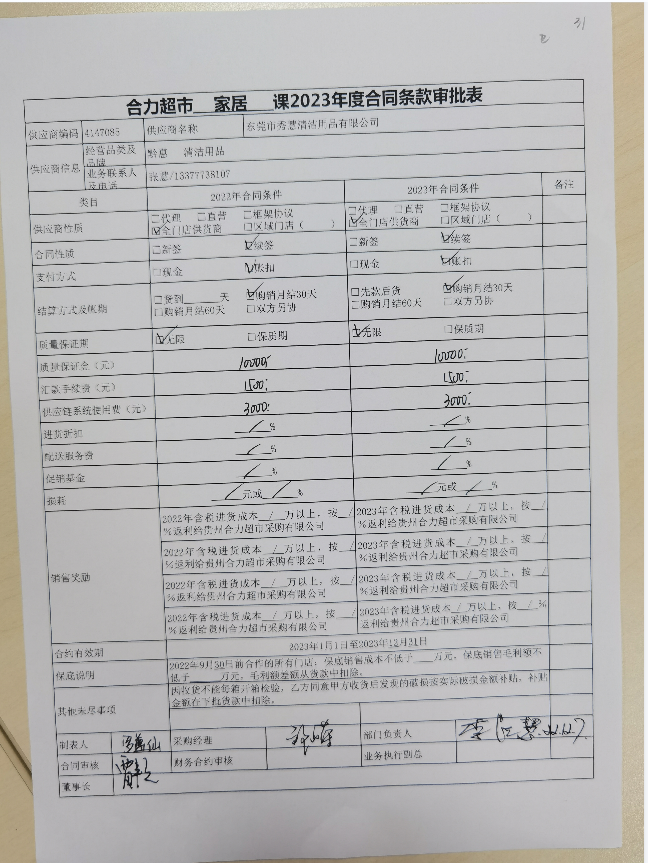 31
合力超市 家居 课2023年度合同条款审批表
供应商编码 4147085 供应商名称 东莞市秀慧清洁用品有限公司
供应商信息 经营品类及品牌 黔惠 清洁用品
业务联系人及电话 张慧/13377738107
类目 2022年合同条件 2023年合同条件 备注
供应商性质 □代理 □直营 □框架协议 □代理 □直营 □框架协议
☑全门店供货商 □区域门店（ ） ☑全门店供货商 □区域门店（ ）
合同性质 □新签 ☑续签 □新签 ☑续签
支付方式 □现金 ☑账扣 □现金 ☑账扣
结算方式及账期 □货到 天 ☑购销月结30天 □先款后货 ☑购销月结30天
□购销月结60天 □双方另协 □购销月结60天 □双方另协
质量保证期 ☑无限 □保质期 ☑无限 □保质期
质量保证金（元） 10000- 10000-
汇款手续费（元） 1500- 1500-
供应链系统使用费（元） 3000- 3000-
进货折扣 / % / %
配送服务费 / % / %
促销基金 / % / %
损耗 / 元或 / % / 元或 / %
销售奖励
2022年含税进货成本 / 万以上，按 / %返利给贵州合力超市采购有限公司 2023年含税进货成本 / 万以上，按 / %返利给贵州合力超市采购有限公司
2022年含税进货成本 / 万以上，按 / %返利给贵州合力超市采购有限公司 2023年含税进货成本 / 万以上，按 / %返利给贵州合力超市采购有限公司
2022年含税进货成本 / 万以上，按 / %返利给贵州合力超市采购有限公司 2023年含税进货成本 / 万以上，按 / %返利给贵州合力超市采购有限公司
2022年含税进货成本 / 万以上，按 / %返利给贵州合力超市采购有限公司 2023年含税进货成本 / 万以上，按 / %返利给贵州合力超市采购有限公司
合约有效期 2023年1月1日至2023年12月31日
保底说明 2022年9月30日前合作的所有门店：保底销售成本不低于 万元，保底销售毛利额不
低于 万元，毛利额差额从货款中扣除。
其他未尽事项 因收货不能每箱开箱检验，乙方同意甲方收货后发现的破损按实际破损金额补贴，补贴
金额在下批货款中扣除。
制表人 采购经理 部门负责人
合同审核 财务合约审核 业务执行副总
董事长